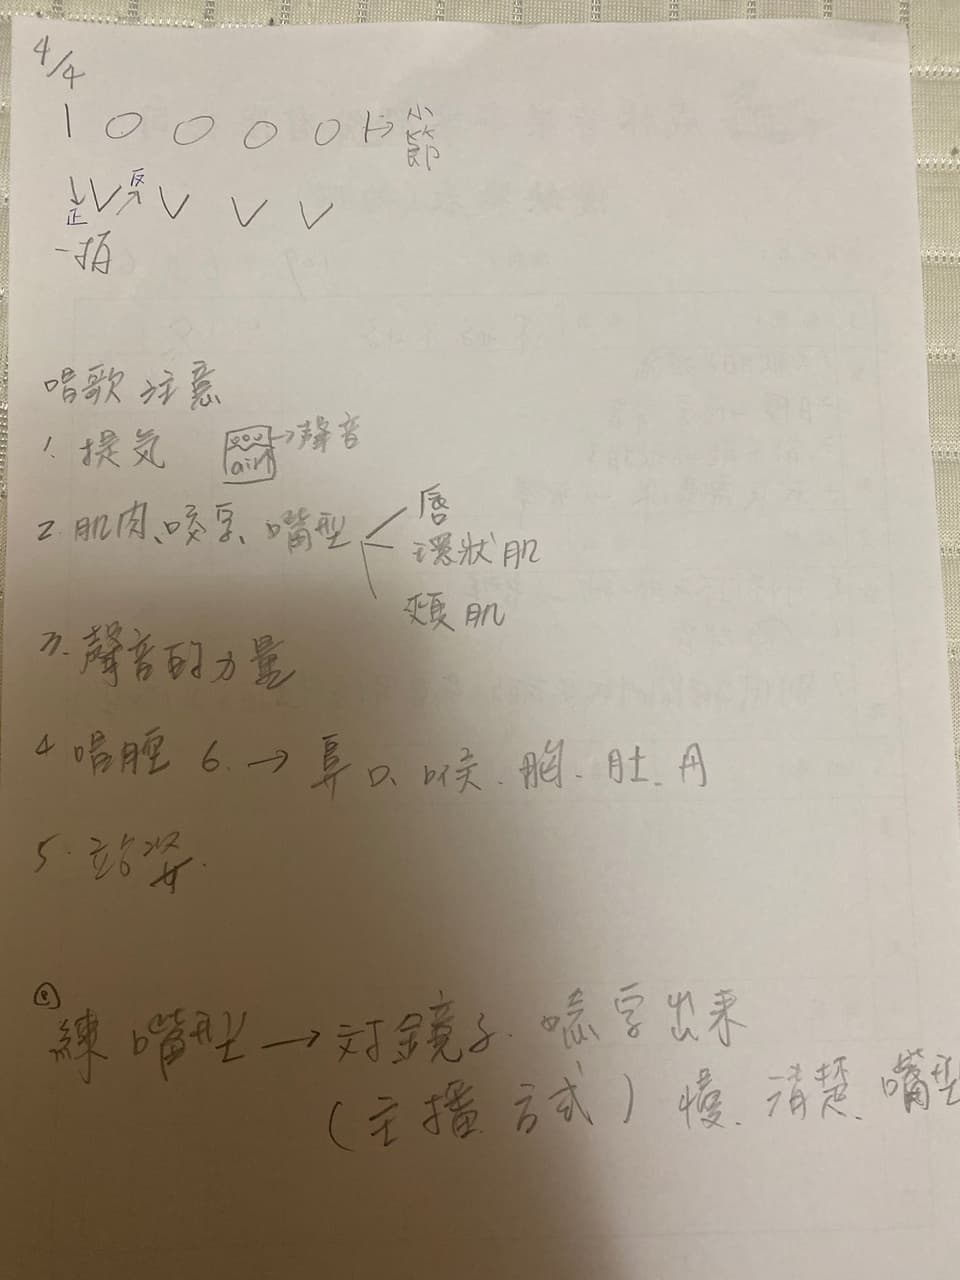 4/4
小節
正 反
一拍
唱歌注意
1. 提気 air → 聲音
2. 肌肉、咬字、嘴型 唇
環狀肌
頰肌
3. 聲音的力量
4 唱腔 6. → 鼻 口、喉、胸、肚、丹
5. 站姿.
練嘴型 → 対鏡子. 唸字出来
(主播方式) 慢、清楚、嘴型